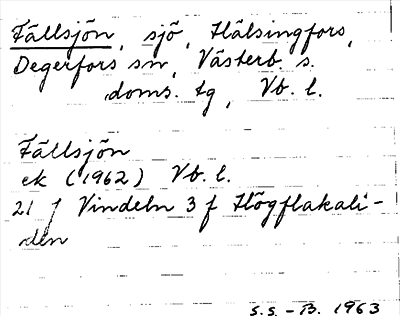 Fällsjön, sjö, Hälsingfors,
Degerfors sn, Västerb. s.
doms. tg, Vb. l.
Fällsjön
ek (1962) Vb. l.
21 J Vindeln 3 f Högflakali-
den
S.S. - B. 1963